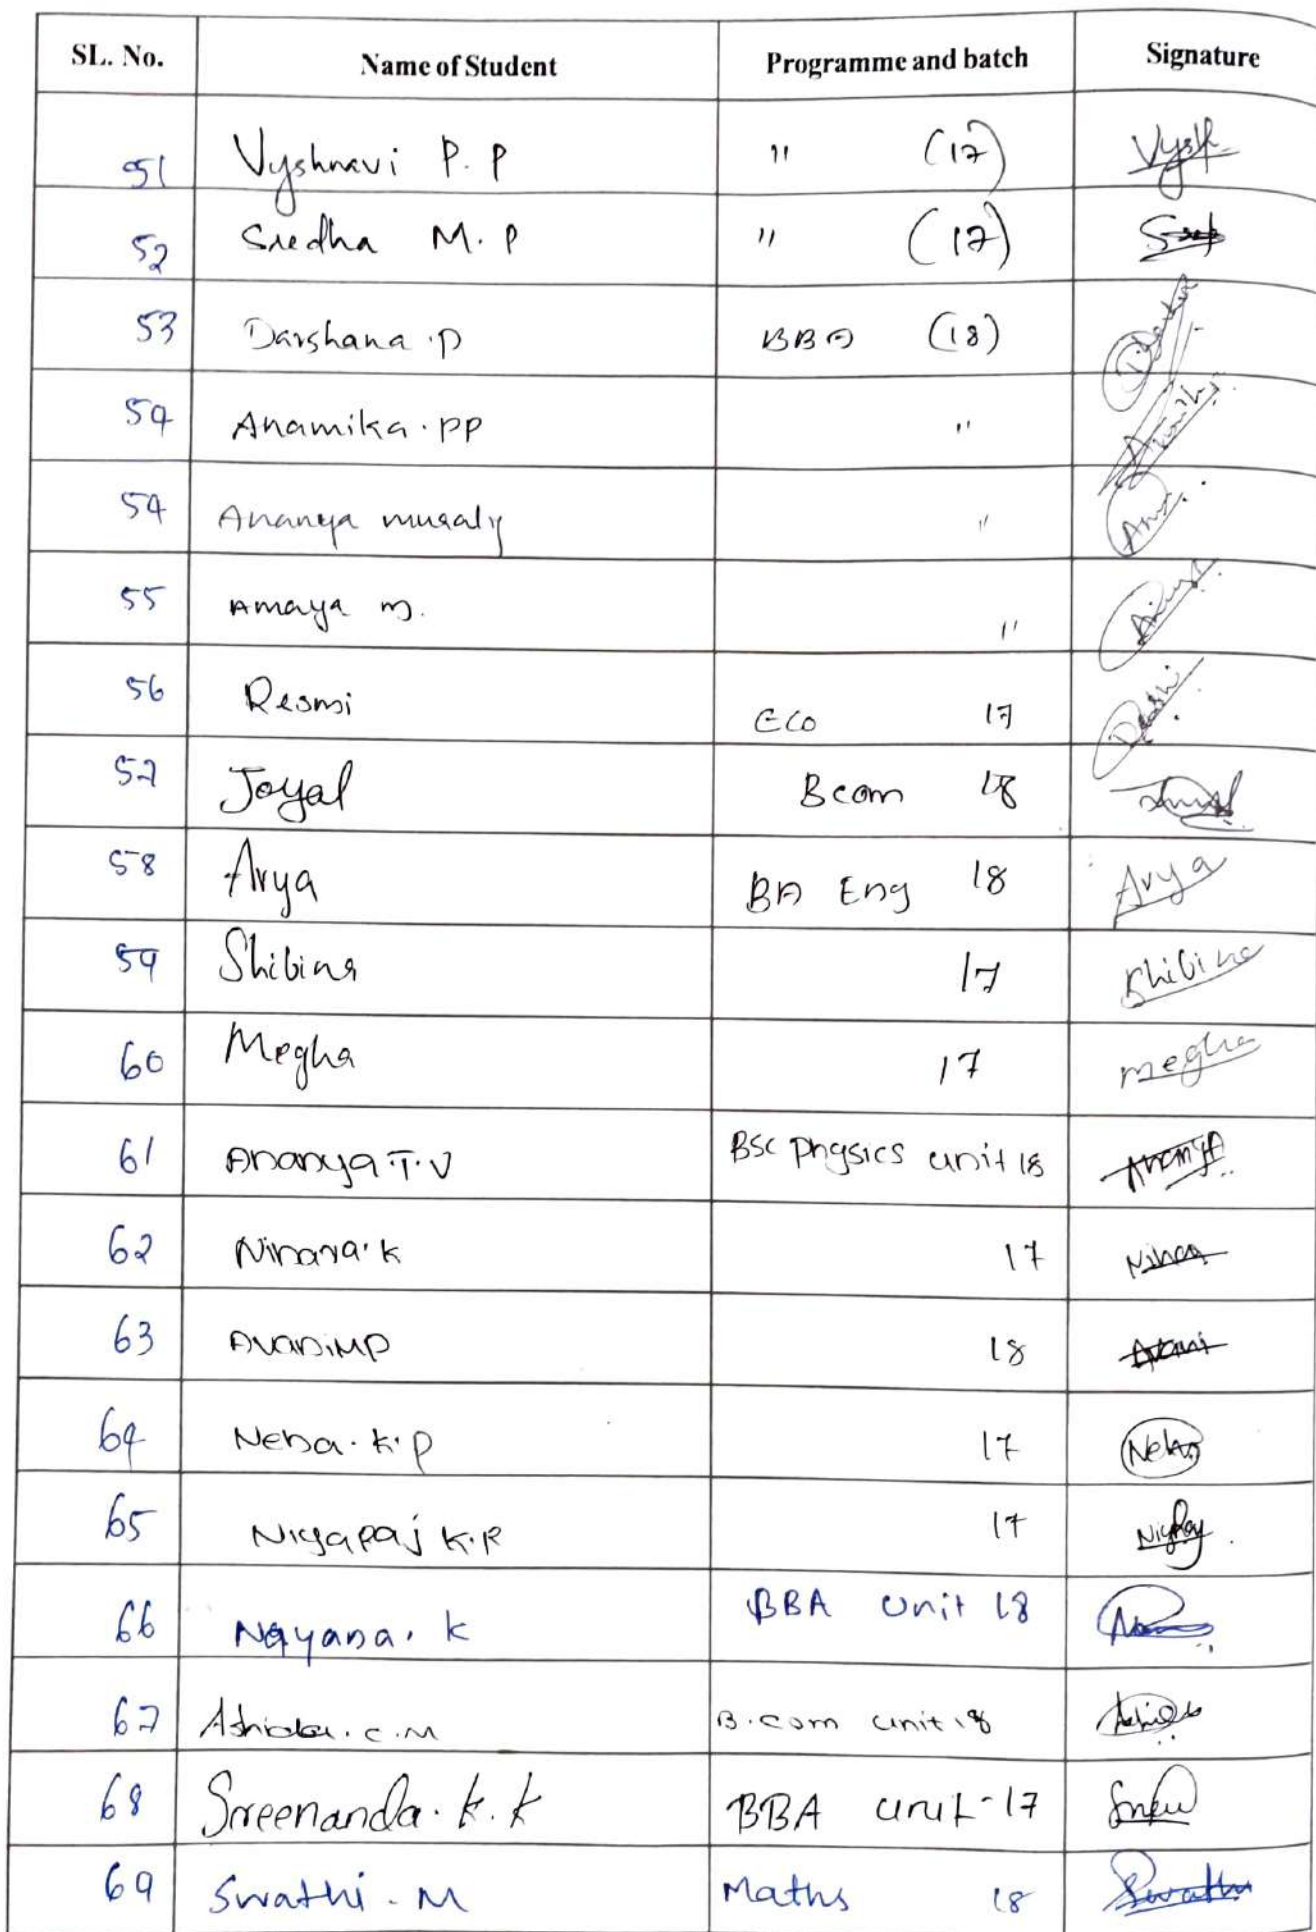 SL. No. Name of Student Programme and batch Signature
51 Vyshnavi P. P " (17) Vysh
52 Sredha M. P " (17)
53 Darshana .P BBA (18)
54 Anamika . PP "
54 Ananya muraly "
55 Amaya m. "
56 Resmi Eco 17
57 Joyal Bcom 18
58 Arya BA Eng 18 Arya
59 Shibina 17 Shibina
60 Megha 17 megha
61 Ananya T. V BSC physics unit 18 Ananya
62 K 17
63 Avani MP 18 Avani
64 Neha . K. P 17 Neha
65 Niyaraj K. R 17
66 Nayana. K BBA Unit 18
67 C. M B. com unit 18
68 Sreenanda. K. K BBA unit - 17
69 Swathi - M Maths 18 Swathi